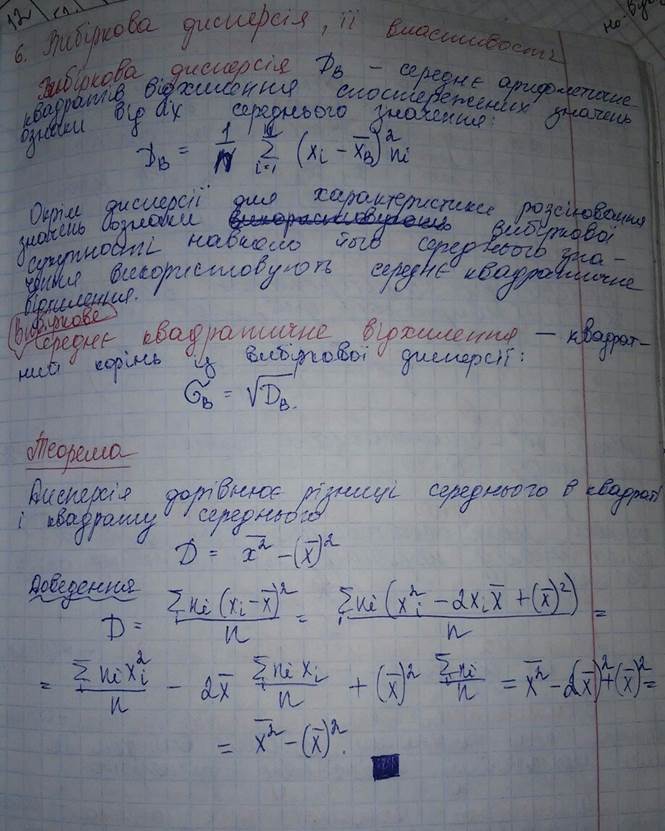 12
6. Вибіркова дисперсія, її властивості
Вибіркова дисперсія D_B – середнє арифметичне
квадратів відхилення спостережених значень
ознаки від їх середнього значення:
D_B = 1/N Σ_{i=1} (x_i – x̄_B)² n_i
Окрім дисперсії для характеристики розсіювання
значень ознаки використовують вибіркової
сукупності навколо його середнього зна-
чення використовують середнє квадратичне
відхилення.
Вибіркове
середнє квадратичне відхилення – квадрат-
ний корінь із вибіркової дисперсії:
σ_B = √D_B.
Теорема
Дисперсія дорівнює різниці середнього в квадраті
і квадрату середнього
D = x̄² – (x̄)²
Доведення
D = Σn_i(x_i – x̄)²/n = Σn_i(x_i² – 2x_i x̄ + (x̄)²)/n =
= Σn_i x_i²/n – 2x̄ Σn_i x_i/n + (x̄)² Σn_i/n = x̄² – 2(x̄)² + (x̄)² =
= x̄² – (x̄)².